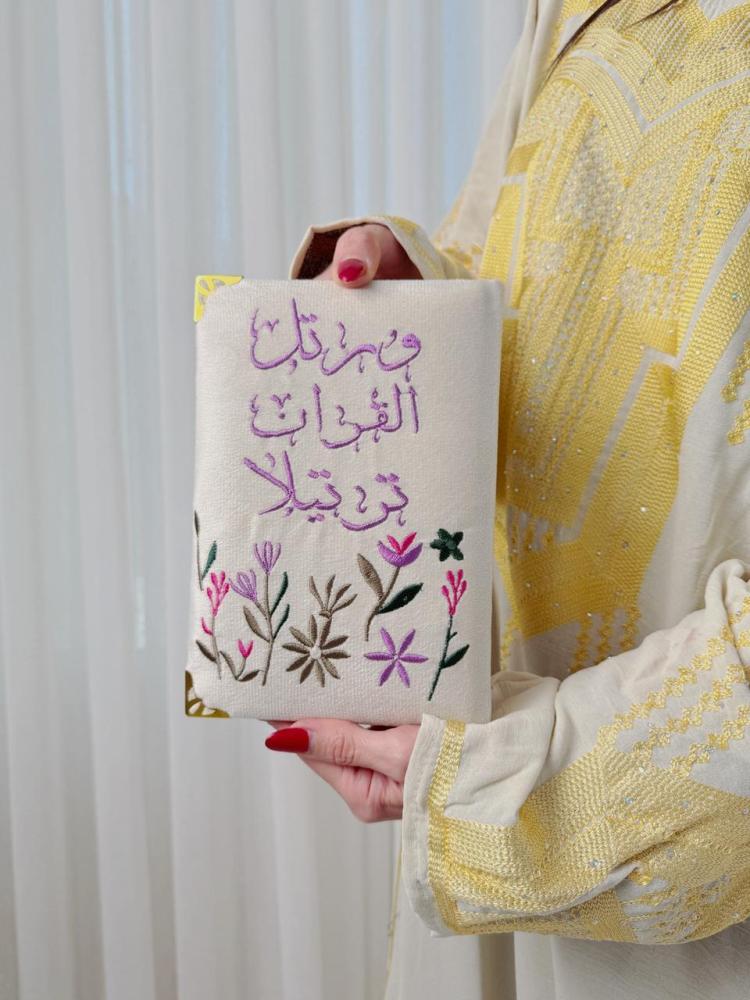 ورتل
القران
ترتيلا